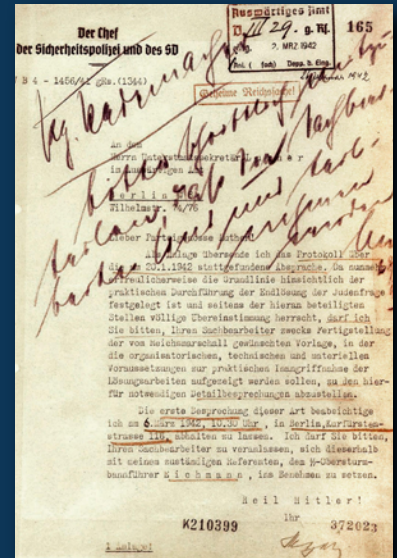 Der Chef
der Sicherheitspolizei und des SD
Auswärtiges Amt
D III 29. g. Rs.
2. MRZ 1942
165
B 4 - 1456/41 gRs. (1344)
Geheime Reichssache!
An den
Herrn Unterstaatssekretär L u t h e r
im Auswärtigen Amt
B e r l i n
Wilhelmstr. 74/76
Lieber Parteigenosse Luther!
Als Anlage übersende ich das Protokoll über
die am 20.1.1942 stattgefundene Absprache. Da nunmehr
erfreulicherweise die Grundlinie hinsichtlich der
praktischen Durchführung der Endlösung der Judenfrage
festgelegt ist und seitens der hieran beteiligten
Stellen völlige Übereinstimmung herrscht, darf ich
Sie bitten, Ihren Sachbearbeiter zwecks Fertigstellung
der vom Reichsmarschall gewünschten Vorlage, in der
die organisatorischen, technischen und materiellen
Voraussetzungen zur praktischen Inangriffnahme der
Lösungsarbeiten aufgezeigt werden sollen, zu den hier-
für notwendigen Detailbesprechungen abzustellen.
Die erste Besprechung dieser Art beabsichtige
ich am 6. März 1942, 10.30 Uhr , in Berlin, Kurfürsten-
strasse 116, abhalten zu lassen. Ich darf Sie bitten,
Ihren Sachbearbeiter zu veranlassen, sich dieserhalb
mit meinem zuständigen Referenten, dem ᛋᛋ-Obersturm-
bannführer E i c h m a n n , ins Benehmen zu setzen.
H e i l  H i t l e r !
Ihr
K210399
372023
1 Anlage!